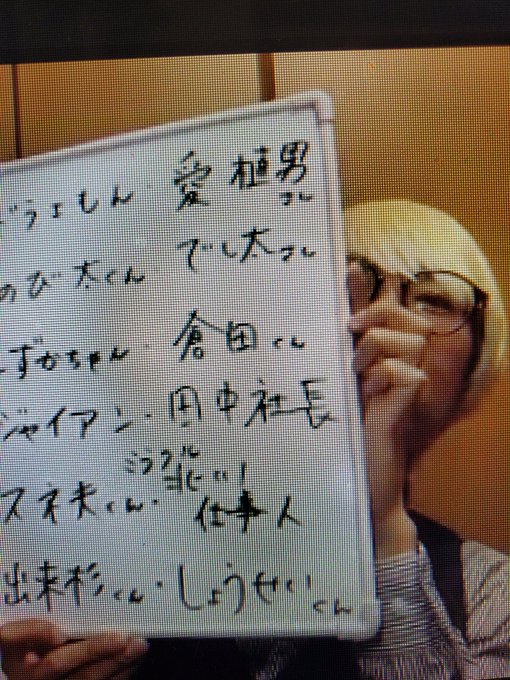 どらえもん・愛植男さん
のび太くん・でし太さん
しずかちゃん・倉田くん
ジャイアン・田中社長
スネ夫くん・ミラクル 仕事人
出来杉くん・しょうせいくん